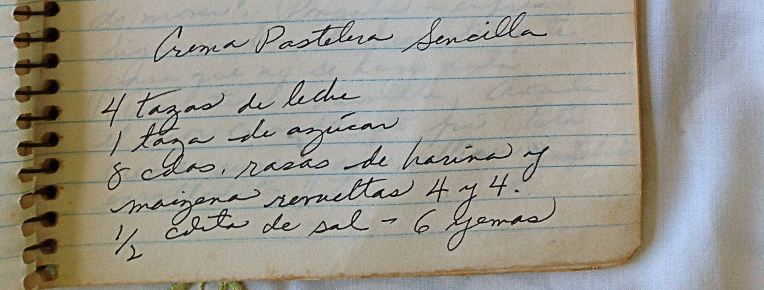 Crema Pastelera Sencilla
4 tazas de leche
1 taza de azúcar
8 cdas. rasas de harina y
maizena revueltas 4 y 4.
1/2 cdita de sal - 6 yemas